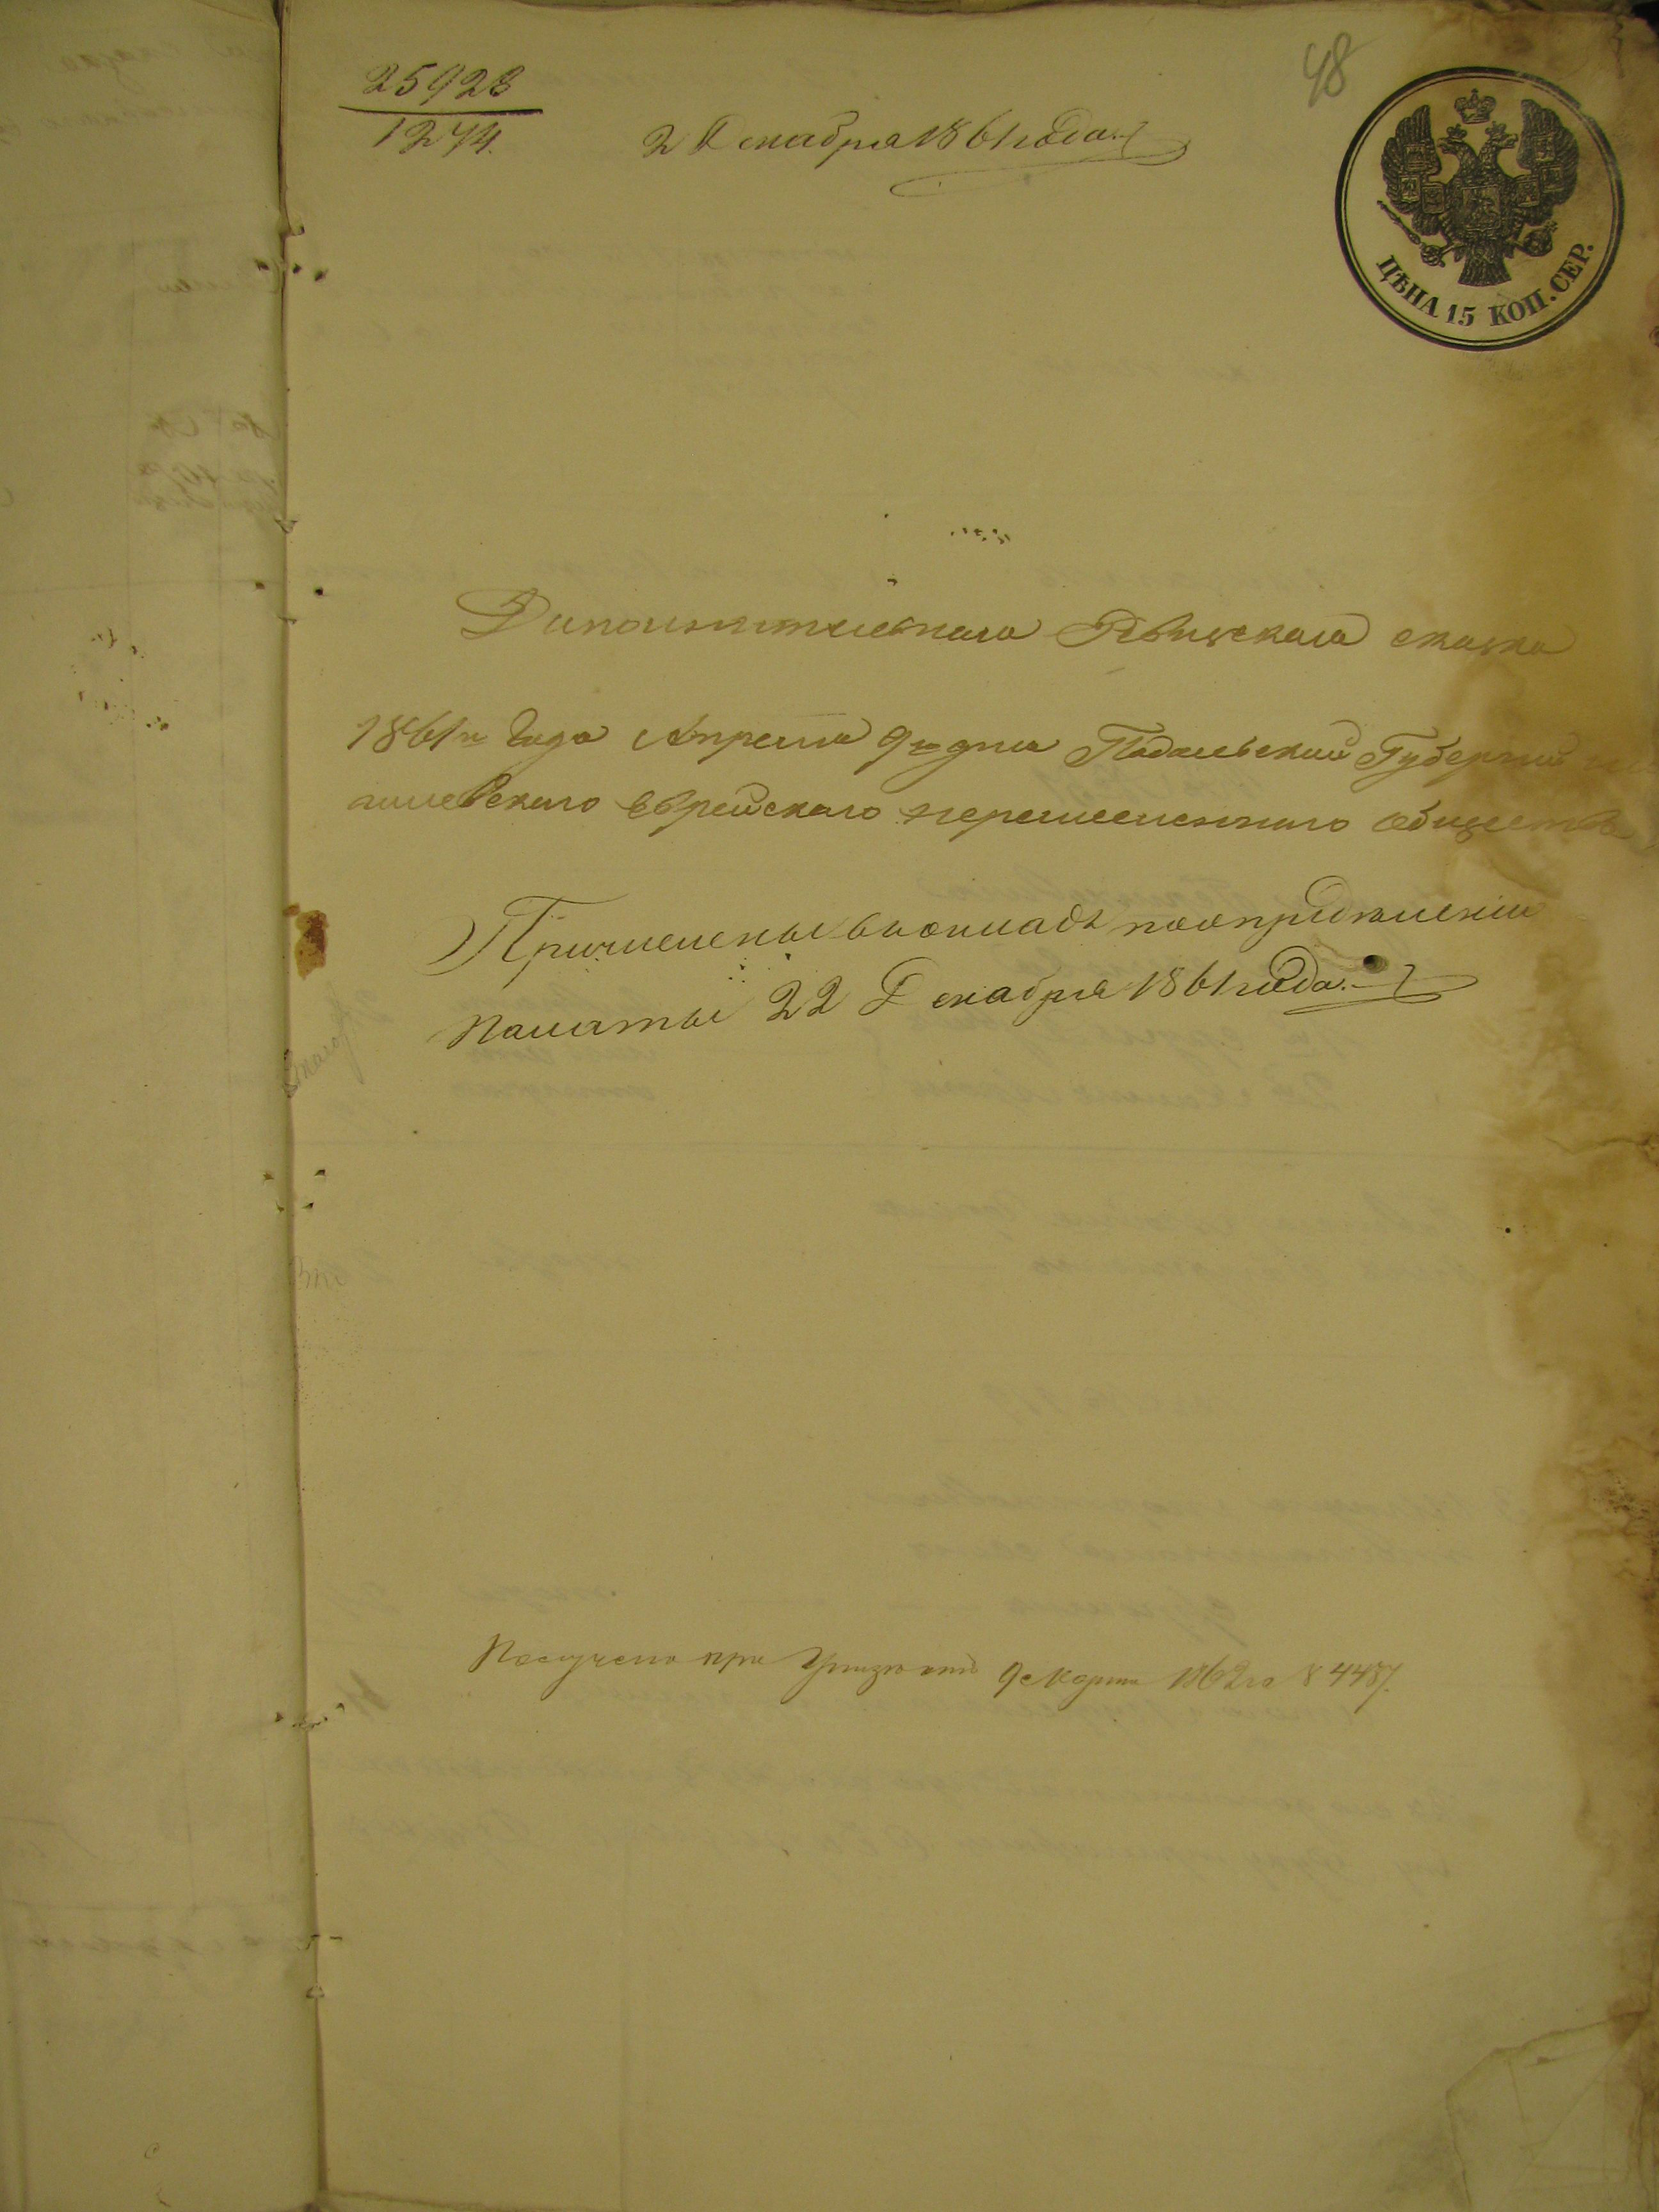 25923
1274.
2 Декабря 1861 года
48
ЦѢНА 15 КОП. СЕР.
Дипонительная Ревизская сказка
1861го Года Апреля 9го дня Подольский Губерний
ашевского Еврейского перечисленного общества
Причислены въ окладъ по опредѣленію
Палаты 22 Декабря 1861 года.
Получено при Указѣ 9 Марта 1862 го 448